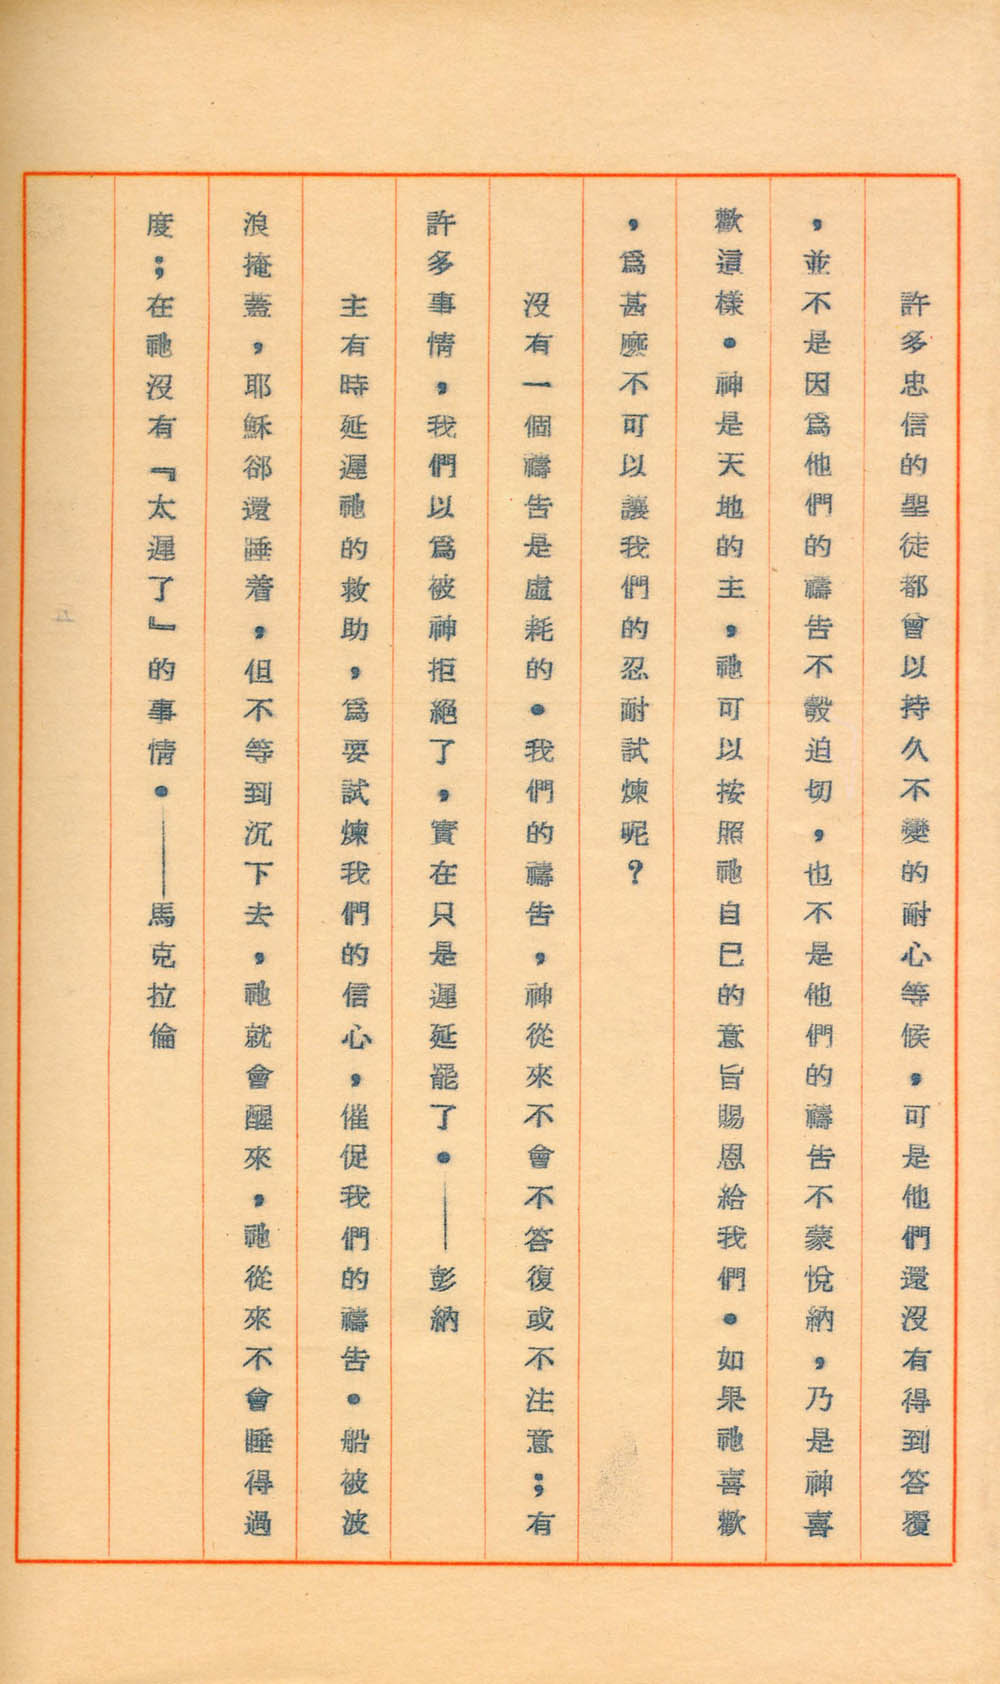 許多忠信的聖徒都會以持久不變的耐心等候，可是他們還沒有得到答覆
，並不是因爲他們的禱告不彀迫切，也不是他們的禱告不蒙悅納，乃是神喜
歡這樣。神是天地的主，祂可以按照祂自已的意旨賜恩給我們。如果祂喜歡
，爲甚麼不可以讓我們的忍耐試煉呢？
沒有一個禱告是虛耗的。我們的禱告，神從來不會不答復或不注意；有
許多事情，我們以爲被神拒絕了，實在只是遲延罷了。——彭納
主有時延遲祂的救助，爲要試煉我們的信心，催促我們的禱告。船被波
浪掩蓋，耶穌郤還睡着，但不等到沉下去，祂就會醒來，祂從來不會睡得過
度；在祂沒有『太遲了』的事情。——馬克拉倫